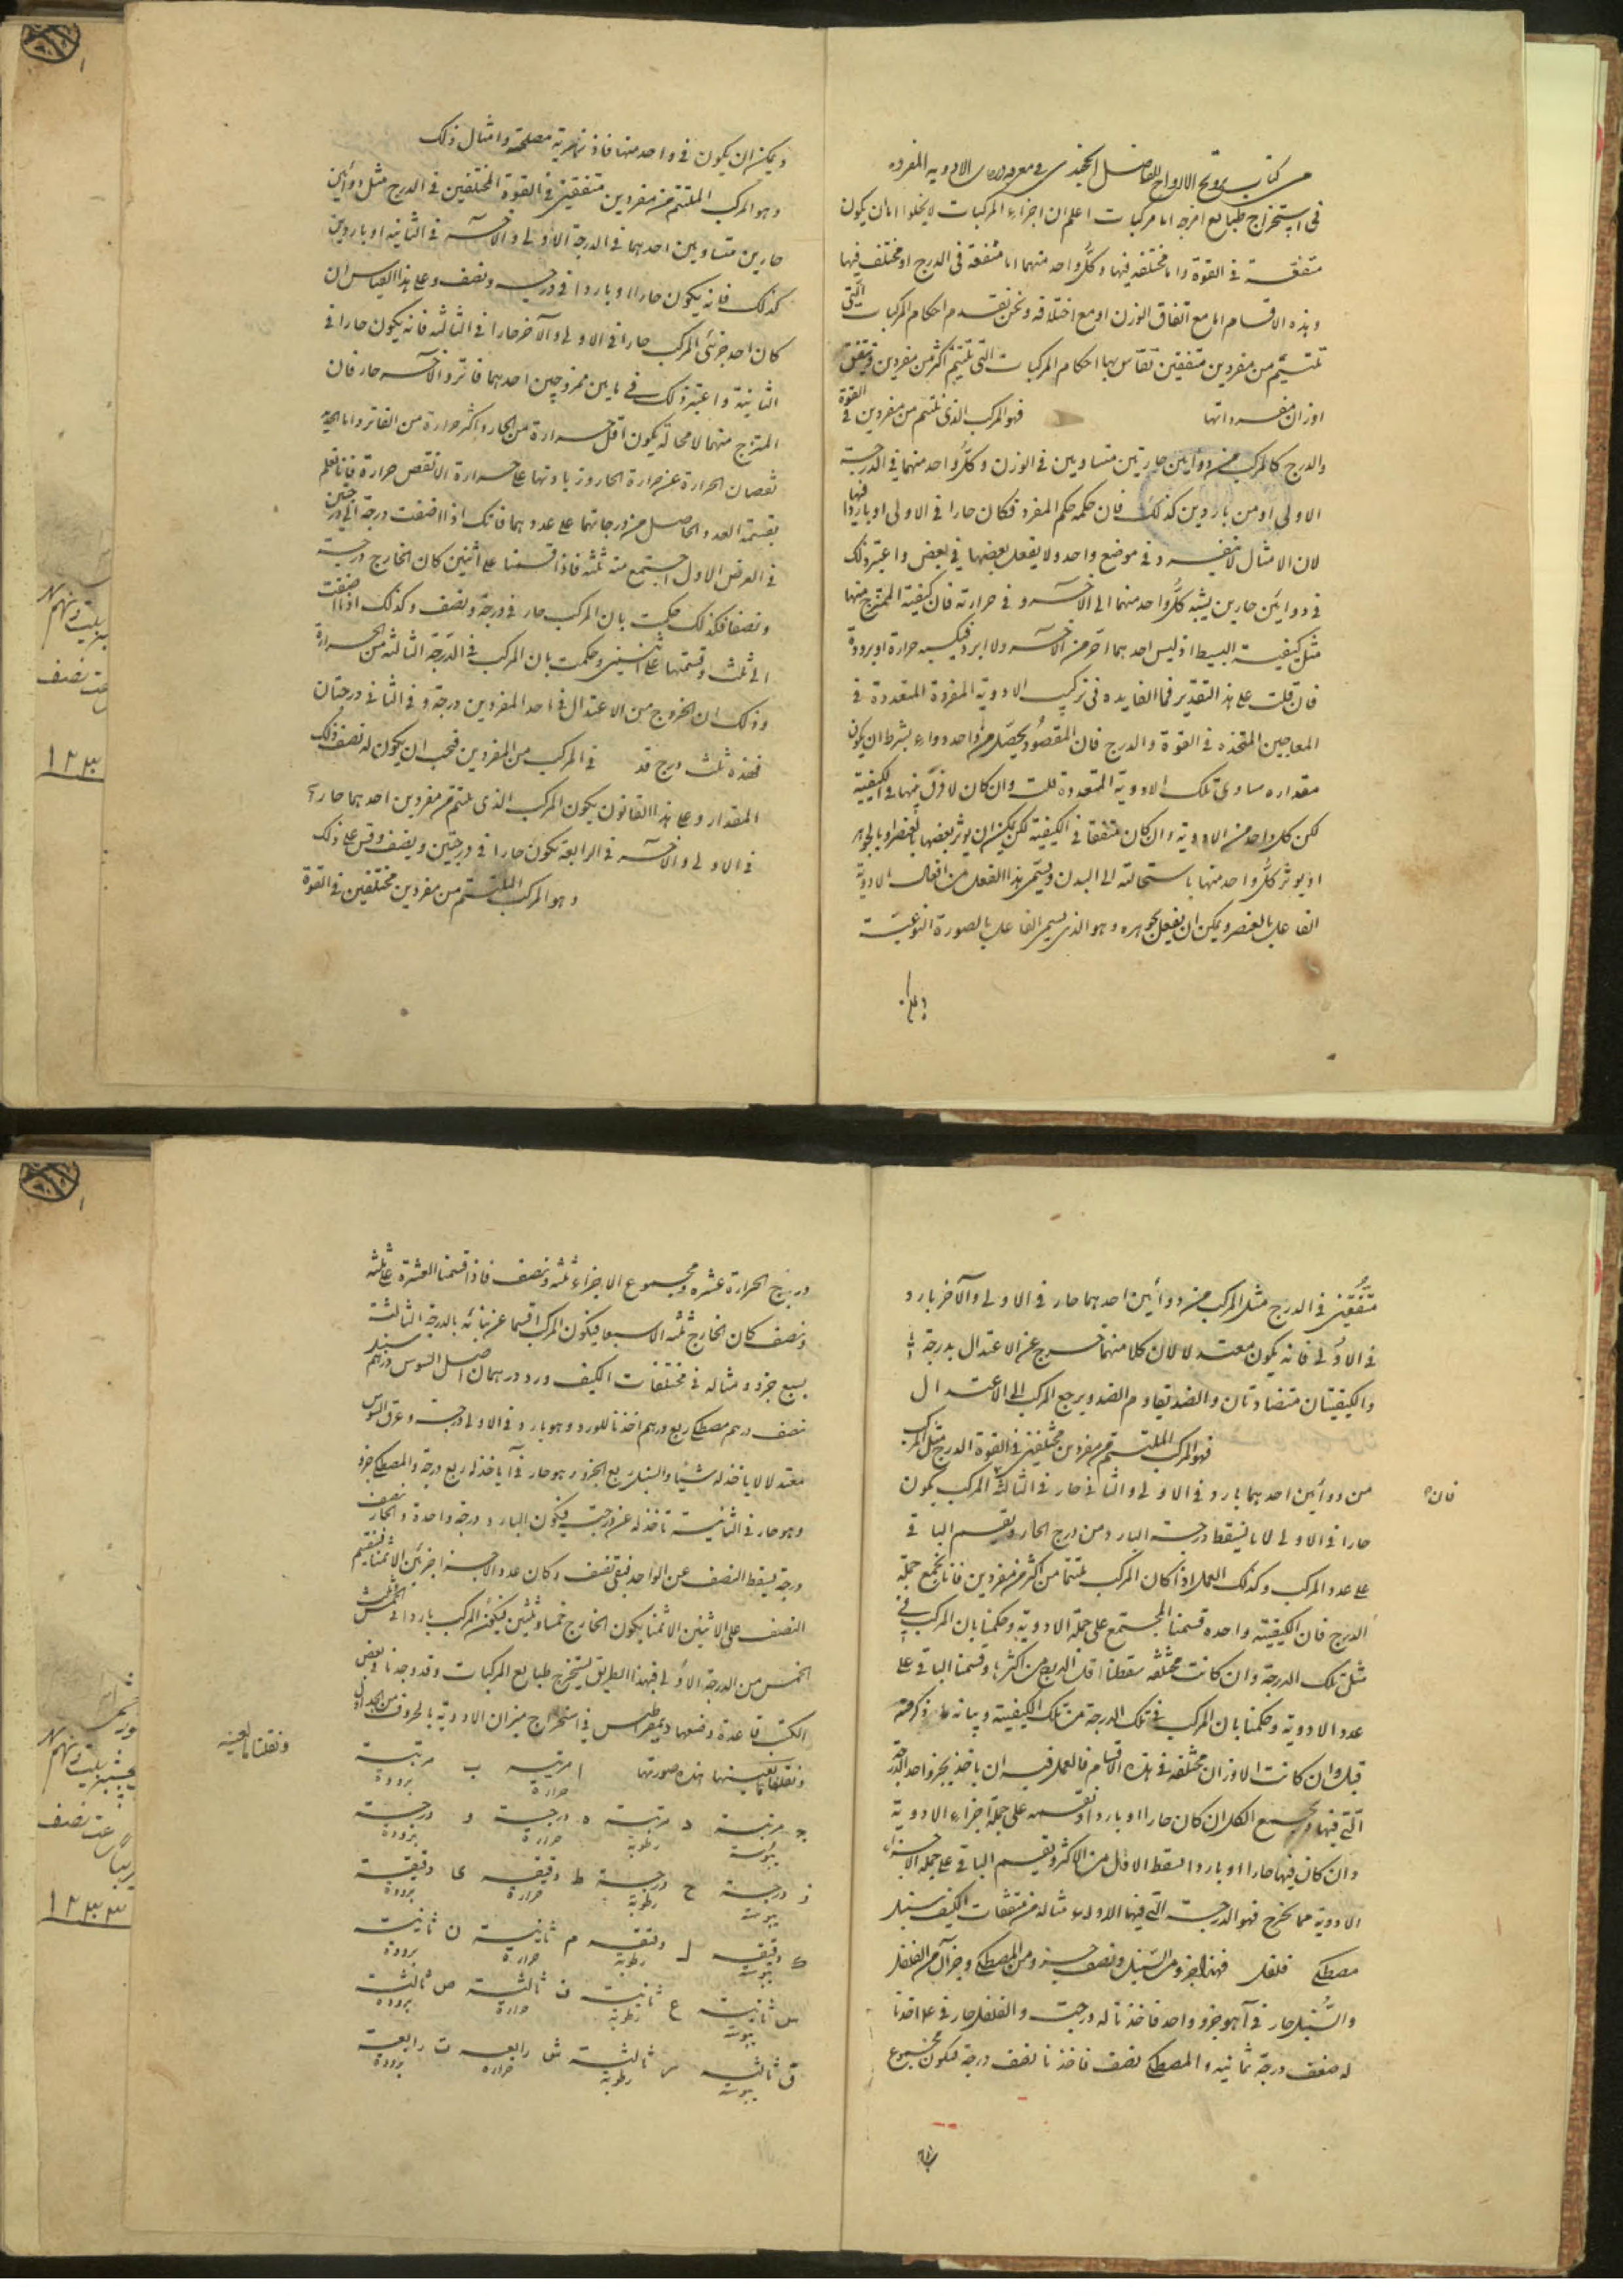 من كتاب ترويح الارواح للفاضل الخجندى فى معرفة الادويه المفرده
فى استخراج طبايع امزجه اما مركبات اعلم ان اجزاء المركبات لا يخلوا اما ان يكون
متفقة فى القوة واما مختلفه فيها وكل واحد منهما اما متفقه فى الدرج او مختلف فيها
وهذه الاقسام اما مع اتفاق الوزن او مع اختلافه ونحن نقدم احكام المركبات التى
تلتئم من مفردين متفقين تقاس بها احكام المركبات التى تلتئم اكثر من مفردين وتتفق
اوزان مفرداتها فهو المركب الذى تلتئم من مفردين فى القوة
والدرج كالمركب من دوائين حارين متساويين فى الوزن وكل واحد منهما فى الدرجة
الاولى او من باردين كذلك فان حكمه حكم المفرد فكان حارا فى الاولى او باردا فيها
لان الامثال لا تنفرد فى موضع واحد ولا يفعل بعضها فى بعض واعتبر ذلك
فى دوائين حارين يشبه كل واحد منهما الى الآخر و فى حرارته فان كيفية الممتزج منهما
مثل كيفية البسيط اذ ليس احدهما احر من الآخر ولا ابرد فيكسر حرارة او برودة
فان قلت على هذا التقدير فما الفايده فى تركيب الادوية المفردة المتعددة فى
المعاجين المتخذه فى القوة والدرج فان المقصود يحصل من واحد دواء بشرط ان يكون
مقداره مساوى تلك الادوية المتعددة قلت وان كان لا فرق بينها فى الكيفية
لكن كل واحد من الادوية وان كان متفقا فى الكيفية لكن يمكن ان يوثر بعضها بالعنصر او بالجوهر
او يوثر كل واحد منها باستحالته الى البدن ويسمى هذا الفعل من افعال الادوية
الفاعل بالعنصر ويمكن ان يفعل بجوهره وهو الذى يسمى الفاعل بالصورة النوعية
ويمكن ان يكون فى واحد منها فاذزهرية مصلحة وامثال ذلك
وهو المركب الملتئم من مفردين متفقين فى القوة المختلفين فى الدرج مثل دوائين
حارين متساويين احدهما فى الدرجة الاولى والآخر فى الثانيه او باردين
كذلك فانه يكون حارا او باردا فى درجه ونصف وعلى هذا القياس ان
كان احد جزئى المركب حارا فى الاولى والآخر حارا فى الثالثه فانه يكون حارا فى
الثانية واعتبر ذلك فى مايين ممزوجين احدهما فاتر والآخر حار فان
الممتزج منهما لا محالة يكون اقل حرارة من الحار واكثر حرارة من الفاتر واما
نقصان الحرارة عن حرارة الحار وزيادتها على حرارة الانقص حرارة فانا نعلم
بقسمة العدد الحاصل من درجاتهما على عددهما فانك اذا اضفت درجة الى درجتين
فى العرض الاول اجتمع منه ثلثه فاذا قسمنا على اثنين كان الخارج درجة
ونصفا فكذلك حكمت بان المركب حار فى درجة ونصف وكذلك اذا اضفت
الى ثلث وقسمتها على اثنين وحكمت بان المركب فى الدرجة الثالثة من الحرارة
وذلك ان الخروج من الاعتدال فى احد المفردين درجة وفى الثانى درجتان
فهذه ثلث درج قد فى المركب من المفردين فيجب ان يكون له نصف ذلك
المقدار وعلى هذا القانون يكون المركب الذى يلتئم من مفردين احدهما حار
فى الاولى والآخر فى الرابعة يكون حارا فى درجتين ونصف وقس على ذلك
وهو المركب الملتئم من مفردين مختلفين فى القوة
متفقين فى الدرج مثل المركب من دوائين احدهما حار فى الاولى والآخر بارد
فى الاولى فانه يكون معتدلا لان كلا منهما خرج عن الاعتدال بدرجة
والكيفيتان متضادتان والضد يقاوم الضد ويرجع المركب الى الاعتدال
فهو المركب الملتئم من مفردين مختلفين فى القوة الدرج مثل المركب
من دوائين احدهما بارد فى الاولى والثانى حار فى الثالثة المركب يكون
فان
حارا فى الاولى لانا نسقط درجة البارد من درج الحار ونقسم الباقى
على عدد المركب وكذلك العمل اذا كان المركب ملتئما من اكثر من مفردين فانا نجمع جملة
الدرج فان الكيفية واحده قسمنا المجتمع على جملة الادوية وحكمنا بان المركب فى
مثل تلك الدرجة وان كانت مختلفه سقطنا اقل الدرج من اكثرها وقسمنا الباقى على
عدد الادوية وحكمنا بان المركب فى تلك الدرجة من تلك الكيفية وبيانه ذكر من
قبل وان كانت الاوزان مختلفه فى هذه الاقسام فالعمل فيه ان ياخذ بجزو احد الدرجة
التى فيها ويجمع الكل ان كان حارا او باردا ونقسمه على جملة اجزاء الادوية
وان كان فيها حارا او باردا اسقط الاقل من الاكثر ونقسم الباقى على جملة الاجزاء
الادوية فما يخرج فهو الدرجة التى فيها الادواء مثاله من متفقات الكيف سنبل
مصطكى فلفل فهذا جزو من السنبل ونصف جزو من المصطكى وجزآن من الفلفل
والسنبل حار فى آ هو جزو واحد فاخذنا له درجة والفلفل حار فى ع اخذنا
له ضعف درجة ثمانيه والمصطكى نصف فاخذنا نصف درجة فيكون مجموع
درج الحرارة عشره ومجموع الاجزاء ثلثه ونصف فاذا قسمنا العشرة على ثلثه
ونصف كان الخارج ثلثه الا سبعا فيكون المركب اقسما عن نهائه بالدرجة الثالثة
بسبع جزو ومثاله فى مختلفات الكيف ورد درهمان اصل السوس درهم سنبل
نصف درهم مصطكى ربع درهم اخذنا للورد وهو بارد فى الاولى درجة وعرق السوس
معتدلا لا ياخذ له شيئا والسنبل ربع الجزو وهو حار فى آ ياخذ له ربع درجة والمصطكى جزو
وهو حار فى الثانية تاخذ له عن درجتين فيكون البارد درجة واحدة والحار نصف
درجة فيسقط النصف من الواحد فيبقى نصف وكان عدد الاجزاء جزئين الا ثمنا فنقسم
النصف على الاثنين الا ثمنا يكون الخارج خمسا وثلثين فيكون المركب باردا فى الخمس
الخمس من الدرجة الاولى فبهذا الطريق يستخرج طبايع المركبات وقد وجدنا فى بعض
الكتب قاعدة وضعها ديمقراطيس فى استخراج ميزان الادوية بالحروف من الجدول
ونقلناها بعينها هذه صورتها ا مرتبه حرارة ب مرتبة برودة
ونقلناها بعينه
ج مرتبة يبوسة د مرتبة رطوبة ه درجة حرارة و درجة برودة
ز درجة يبوسة ح درجة رطوبة ط دقيقه حرارة ى دقيقة برودة
ك دقيقه يبوسة ل دقيقه رطوبة م ثانية حرارة ن ثانية برودة
س ثانية يبوسة ع ثانية رطوبة ف ثالثة حرارة ص ثالثة برودة
ق ثالثه يبوسة ر ثالثة رطوبة ش رابعه حرارة ت رابعة برودة